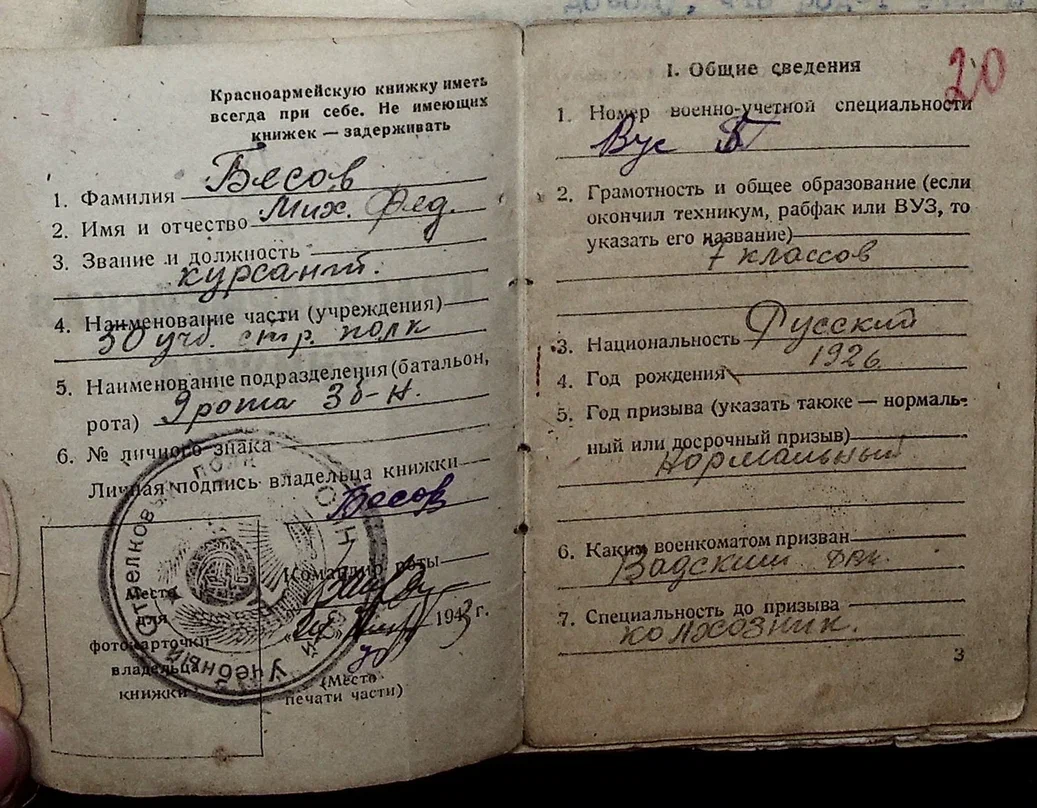 Красноармейскую книжку иметь
всегда при себе. Не имеющих
книжек — задерживать
1. Фамилия Бесов
2. Имя и отчество Мих. Фед.
3. Звание и должность
курсант.
4. Наименование части (учреждения)
30 учб. стр. полк
5. Наименование подразделения (батальон,
рота) 9 рота 3 б-н.
6. № личного знака
Личная подпись владельца книжки
Бесов
Командир роты
1943 г.
Место
для
фотокарточки
владельца
книжки
(Место
печати части)
Учебный Стрелковый полк
20
I. Общие сведения
1. Номер военно-учетной специальности
Вус
2. Грамотность и общее образование (если
окончил техникум, рабфак или ВУЗ, то
указать его название)
7 классов
3. Национальность Русский
4. Год рождения 1926
5. Год призыва (указать также — нормаль-
ный или досрочный призыв)
Нормальный
6. Каким военкоматом призван
Вадским
7. Специальность до призыва
колхозник.
3